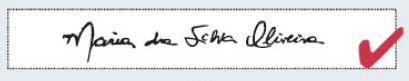 Maria da Silva Oliveira